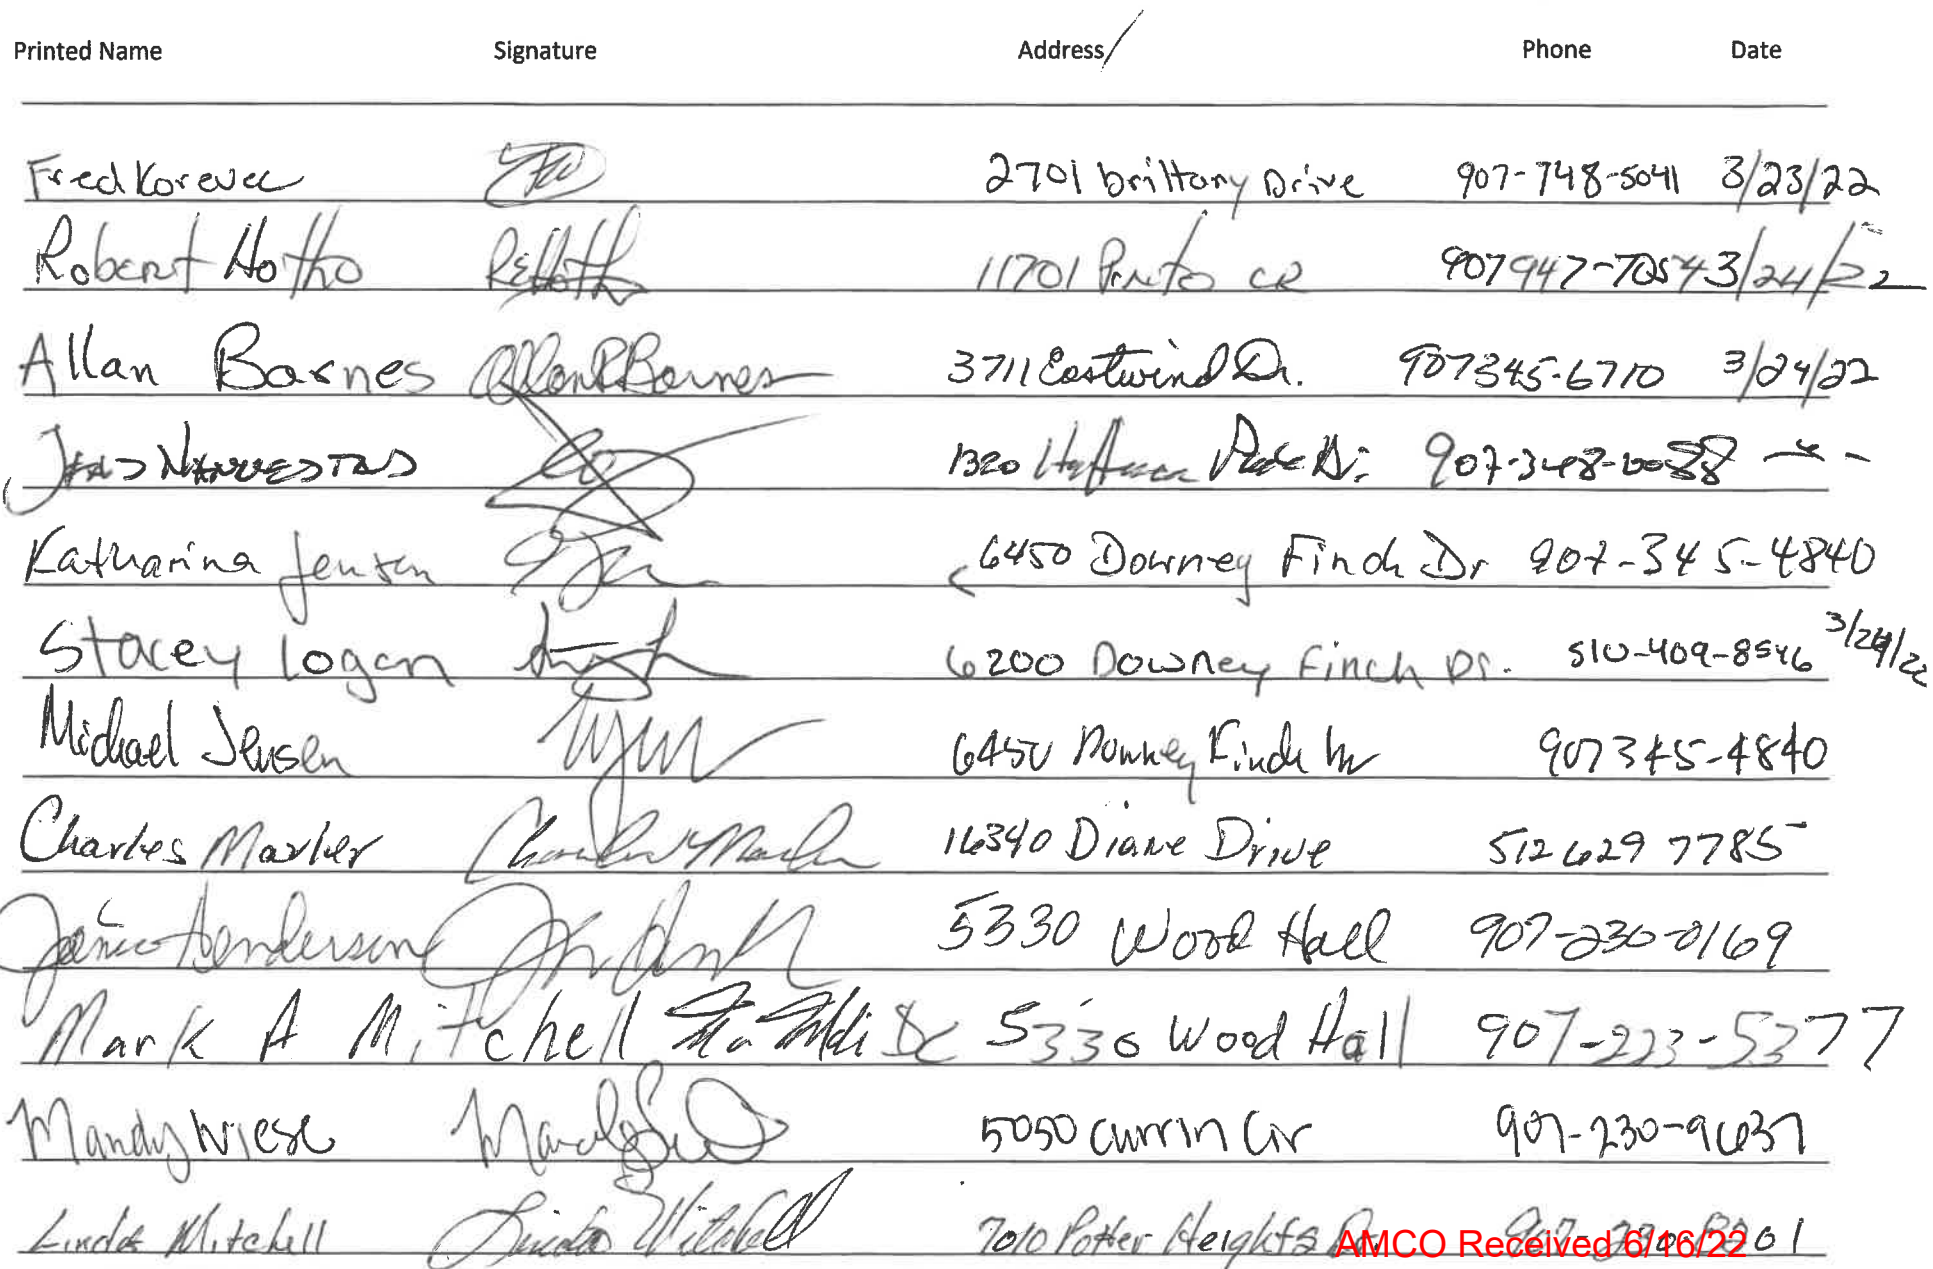 Printed Name Signature Address Phone Date
Fred Korevec 2701 brittany Drive 907-748-5041 3/23/22
Robert Hotho REHoth 11701 Pinto CR 907 947-7054 3/24/22
Allan Barnes Allan R Barnes 3711 Eastwind Dr. 907 345-6710 3/24/22
1320 Huffman Park Dr. 907-348-0088
Katharina Jensen 6450 Downey Finch Dr 907-345-4840
Stacey Logan 6200 Downey Finch Dr. 510-409-8546 3/24/22
Michael Jensen 6450 Downey Finch Dr 907 345-4840
Charles Marker Charles Marker 16340 Diane Drive 512 629 7785
Henderson 5330 Wood Hall 907-230-0169
Mark A Mitchell 5330 Wood Hall 907-223-5377
Mandy Wiese 5050 Currin Cir 907-230-9637
Linda Mitchell Linda Mitchell 7010 Potter Heights 01
AMCO Received 6/16/22